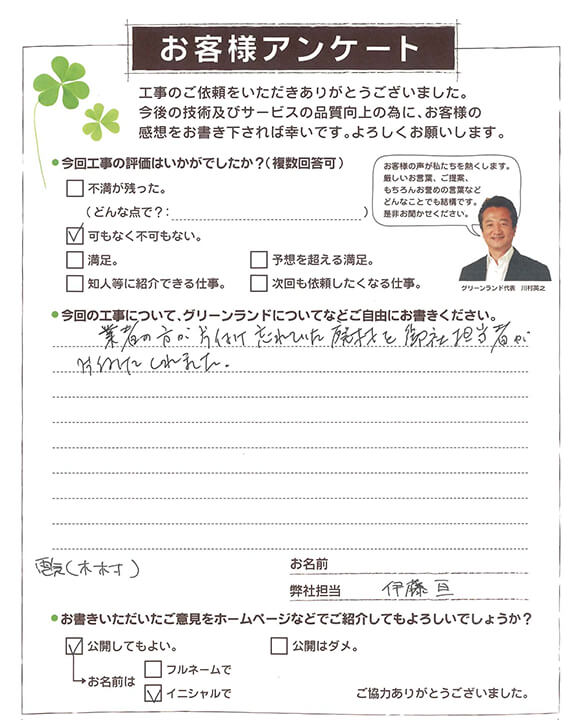 お客様アンケート
工事のご依頼をいただきありがとうございました。
今後の技術及びサービスの品質向上の為に、お客様の
感想をお書き下されば幸いです。よろしくお願いします。
●今回工事の評価はいかがでしたか?(複数回答可)
不満が残った。
(どんな点で?: )
可もなく不可もない。
満足。
予想を超える満足。
知人等に紹介できる仕事。
次回も依頼したくなる仕事。
お客様の声が私たちを熱くします。
厳しいお言葉、ご提案、
もちろんお誉めの言葉など
どんなことでも結構です。
是非お聞かせください。
グリーンランド代表 川村英之
●今回の工事について、グリーンランドについてなどご自由にお書きください。
業者の方が片付け忘れていた廃材を御社担当者が
片付けてくれました。
電気(木村)
お名前
弊社担当 伊藤 亘
●お書きいただいたご意見をホームページなどでご紹介してもよろしいでしょうか?
公開してもよい。
公開はダメ。
お名前は
フルネームで
イニシャルで
ご協力ありがとうございました。